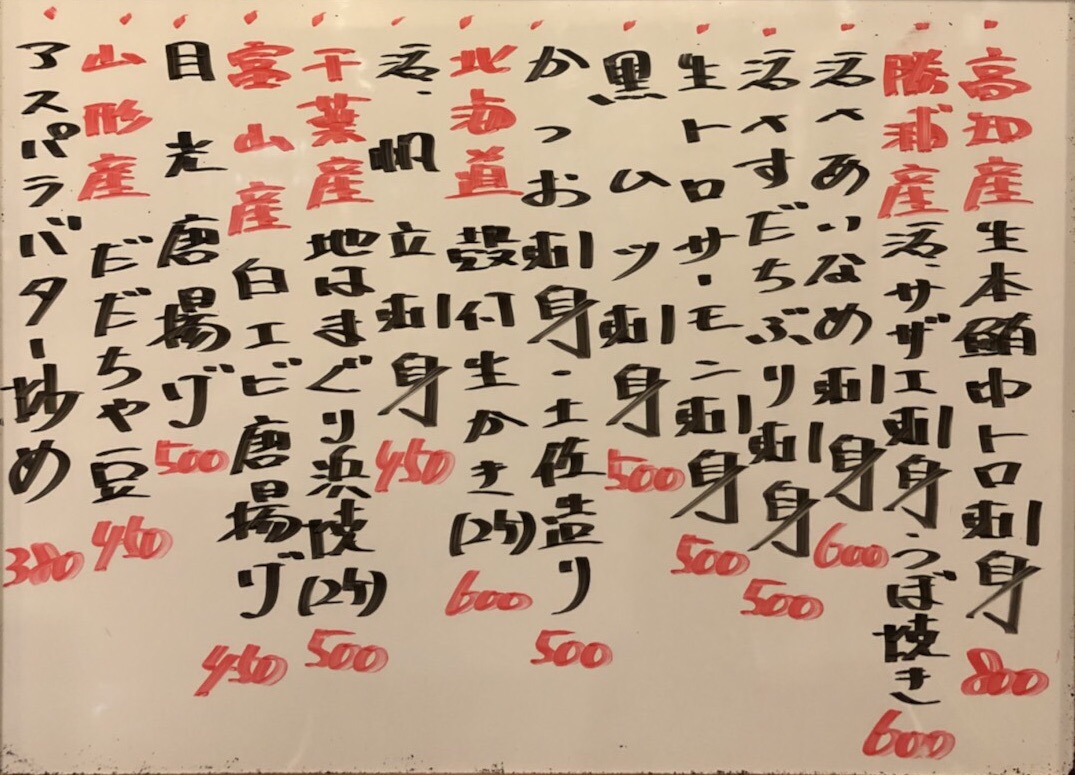 高知産生本鮪中トロ刺身 800
勝浦産活サザエ刺身うつぼ焼き 600
活〆あいなめ刺身 600
活〆すだちぶり刺身 500
生トロサーモン刺身 500
黒ムツ刺身 500
かつお刺身・土佐造り 500
北海道殻付生かき(2ケ) 600
活帆立刺身 450
千葉産地はまぐり浜焼(2ケ) 500
富山産白エビ唐揚げ 450
目光唐揚げ 500
山形産だだちゃ豆 450
アスパラバター炒め 380